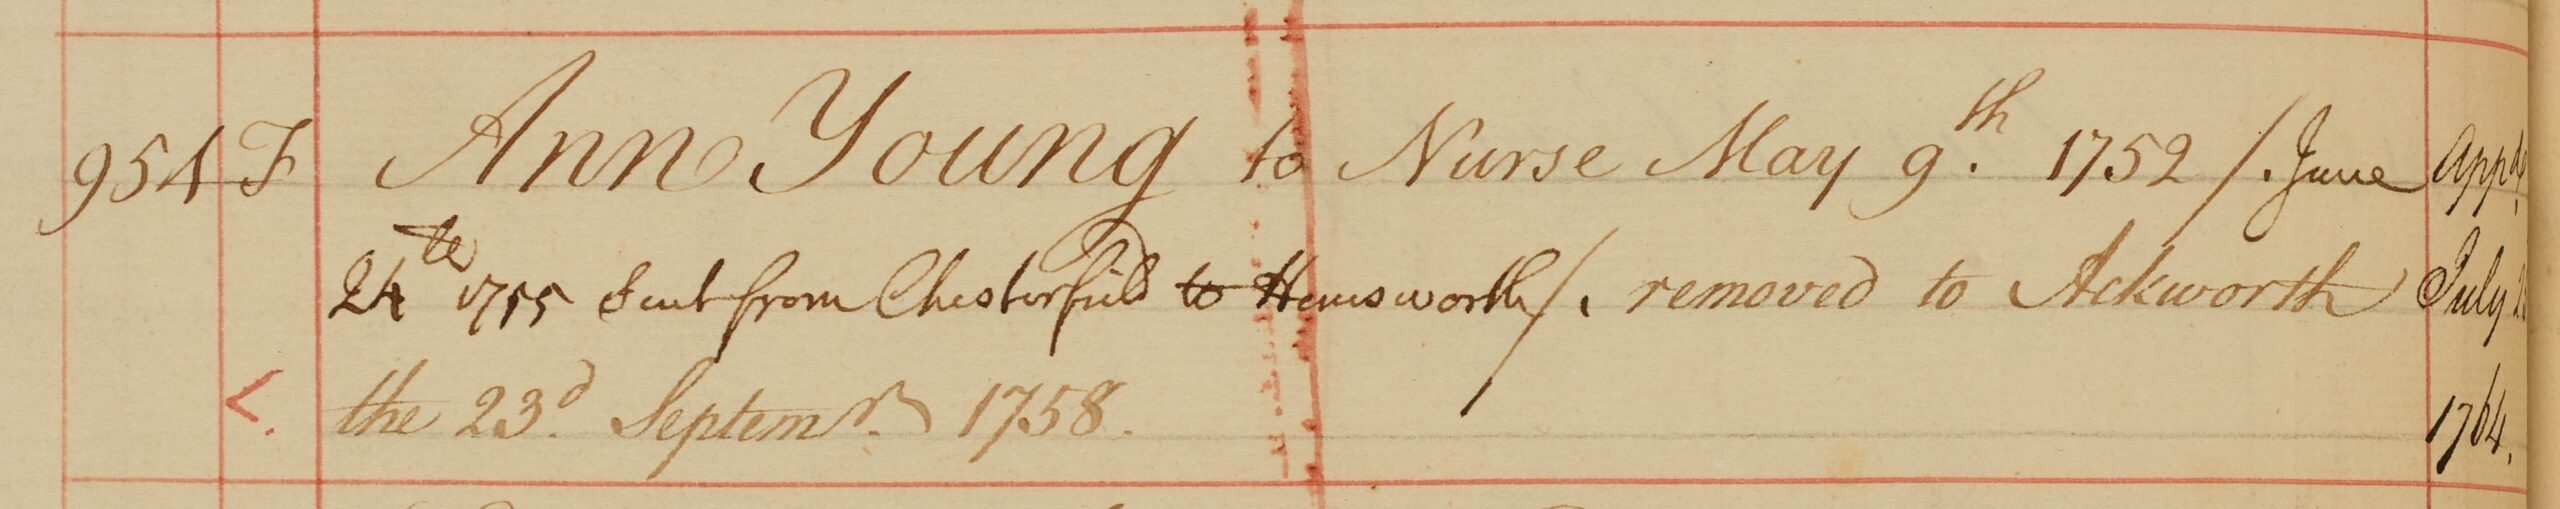 954 F Ann Young to Nurse May 9.th 1752 /. June Appd.
24th 1755 Sent from Chesterfield to Hemsworth /. removed to Ackworth July
the 23.d Septemr. 1758. 1764.